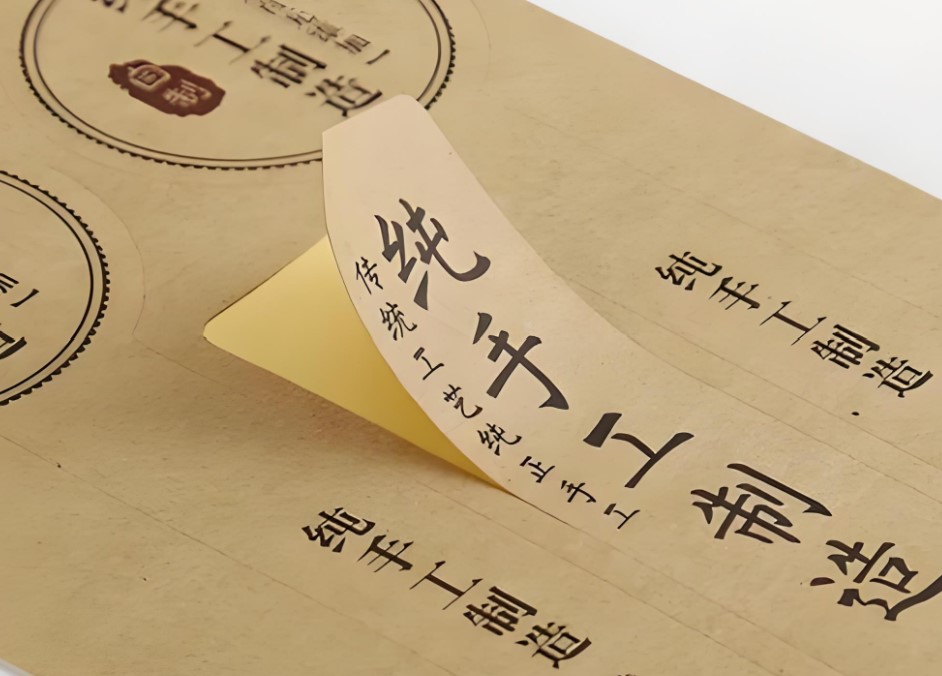 手工制造
纯手工制造
传统工艺纯正手工
纯手工制造
纯手工制造